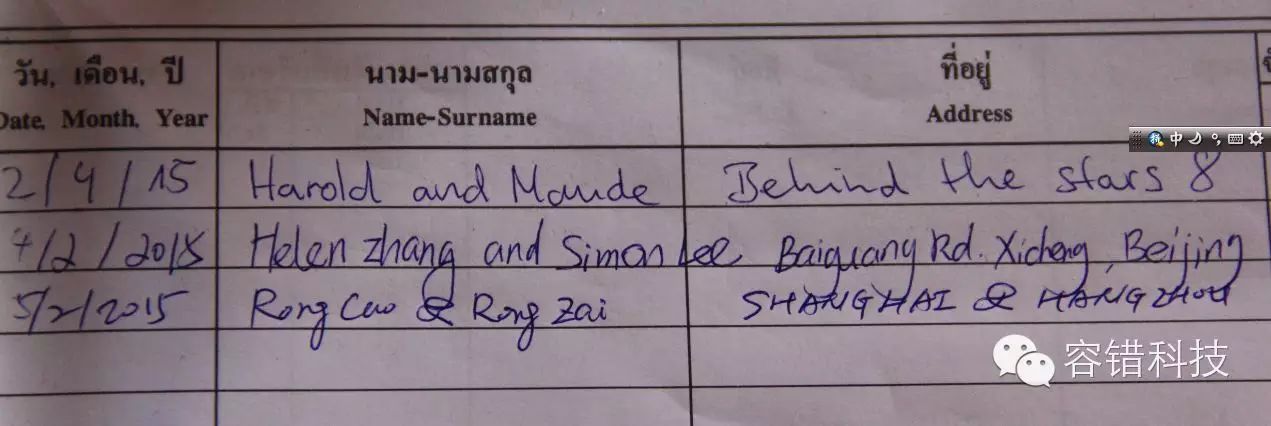 วัน, เดือน, ปี นาม-นามสกุล ที่อยู่
Date, Month, Year Name-Surname Address
中
2/4/15 Harold and Maude Behind the stars 8
4/2/2015 Helen Zhang and Simon Lee Baiguang Rd. Xicheng, Beijing
5/2/2015 Rong Cuo & Rong Zai SHANGHAI & HANGZHOU
容错科技